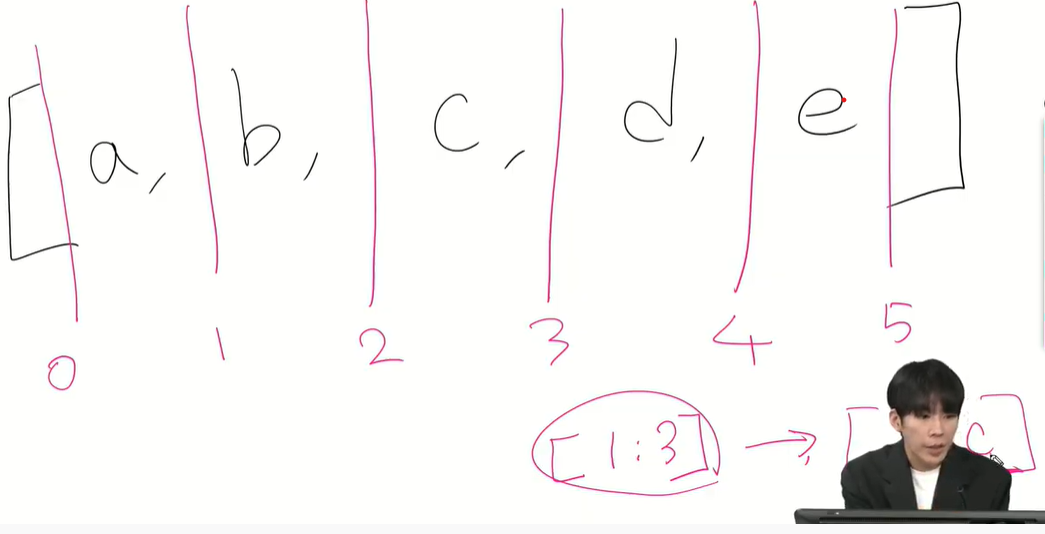 [a, b, c, d, e]
0 1 2 3 4 5
[1:3] → [ c]